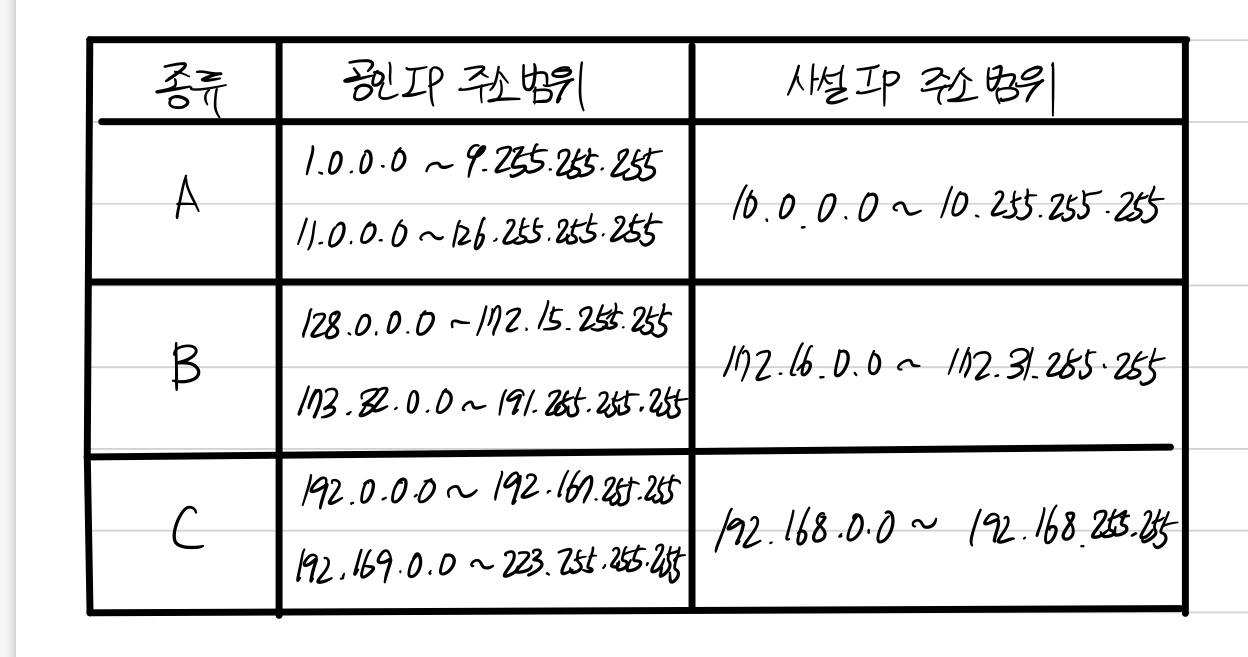 종류 공인 IP 주소 범위 사설 IP 주소 범위
A 1.0.0.0 ~ 9.255.255.255
11.0.0.0 ~ 126.255.255.255
10.0.0.0 ~ 10.255.255.255
B 128.0.0.0 ~ 172.15.255.255
173.32.0.0 ~ 191.255.255.255
172.16.0.0 ~ 172.31.255.255
C 192.0.0.0 ~ 192.167.255.255
192.169.0.0 ~ 223.255.255.255
192.168.0.0 ~ 192.168.255.255